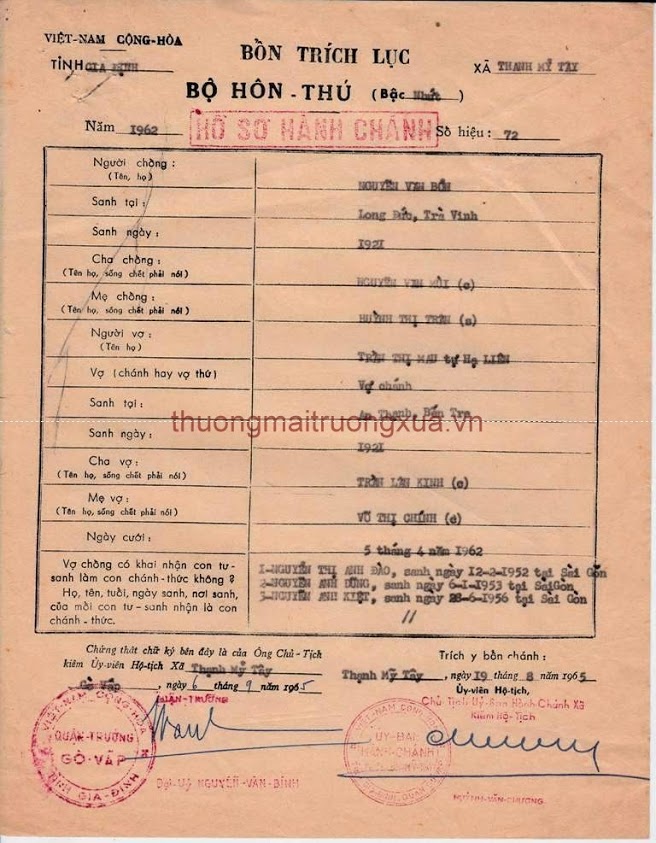 VIỆT-NAM CỘNG-HÒA
TỈNH GIA ĐỊNH
BỒN TRÍCH LỤC
XÃ THẠNH MỸ TÂY
BỘ HÔN-THÚ (Bậc Nhứt)
Năm 1962
HỒ SƠ HÀNH CHÁNH
Số hiệu: 72
Người chồng: NGUYỄN VĂN BỔN
(Tên, họ)
Sanh tại: Long Đức, Trà Vinh
Sanh ngày: 1921
Cha chồng: NGUYỄN VĂN MÙI (c)
(Tên họ, sống chết phải nói)
Mẹ chồng: HUỲNH THỊ (c)
(Tên họ, sống chết phải nói)
Người vợ: TRẦN THỊ MAU tự Hạ LIÊN
(Tên họ)
Vợ (chánh hay vợ thứ) Vợ chánh
Sanh tại: An Thạnh, Bến Tre
thuongmaitruongxua.vn
Sanh ngày: 1921
Cha vợ: TRẦN KINH (c)
(Tên họ, sống chết phải nói)
Mẹ vợ: VÕ THỊ CHÍNH (c)
(Tên họ, sống chết phải nói)
Ngày cưới: 5 tháng 4 năm 1962
Vợ chồng có khai nhận con tư-
sanh làm con chánh-thức không?
Họ, tên, tuổi, ngày sanh, nơi sanh,
của mỗi con tư-sanh nhận là con
chánh-thức.
1-NGUYỄN THỊ ANH ĐÀO, sanh ngày 12-2-1952 tại Sài Gòn
2-NGUYỄN ANH DŨNG, sanh ngày 6-1-1953 tại SàiGòn
3-NGUYỄN ANH KIỆT, sanh ngày 28-6-1956 tại Sài Gòn
//
Chứng thật chữ ký bên đây là của Ông Chủ-Tịch
kiêm Ủy-viên Hộ-tịch Xã Thạnh Mỹ Tây
Gò Vấp, ngày 6 tháng 9 năm 1965
QUẬN-TRƯỞNG
Trích y bồn chánh:
Thạnh Mỹ Tây, ngày 19 tháng 8 năm 1965
Ủy-viên Hộ-tịch,
Chủ Tịch Ủy-Ban Hành Chánh Xã
Kiêm Hộ-Tịch
VIỆT-NAM CỘNG-HÒA
QUẬN-TRƯỞNG
GÒ-VẤP
TỈNH GIA-ĐỊNH
VIỆT-NAM CỘNG-HÒA
ỦY-BAN
HÀNH-CHÁNH
Đại-Úy NGUYỄN-VĂN-BÍNH
HUỲNH-VĂN-CHƯƠNG